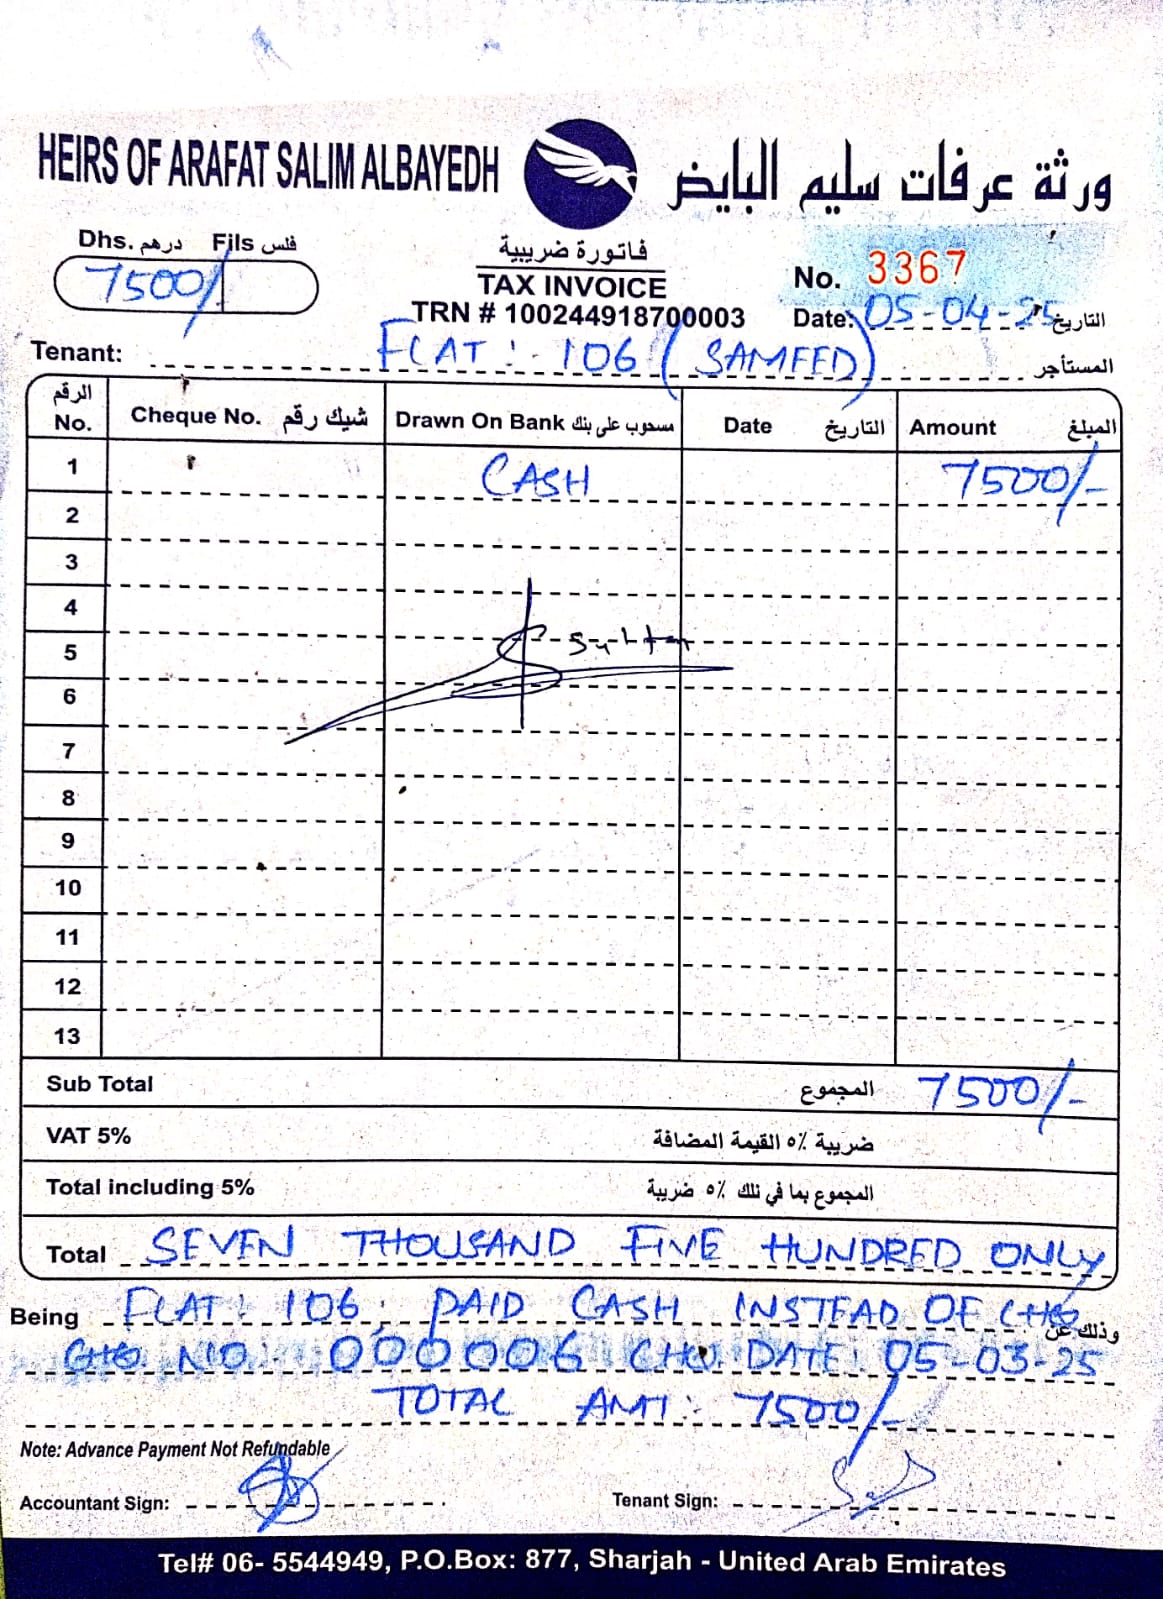 HEIRS OF ARAFAT SALIM ALBAYEDH
ورثة عرفات سليم البايض
Dhs. درهم Fils فلس
7500/
فاتورة ضريبية
TAX INVOICE
TRN # 100244918700003
No. 3367
Date: 05-04-25 التاريخ
Tenant: FLAT:- 106 (SAMEED) المستأجر
الرقم No. Cheque No. شيك رقم Drawn On Bank مسحوب على بنك Date التاريخ Amount المبلغ
1 CASH 7500/-
2
3
4
5 Sultan
6
7
8
9
10
11
12
13
Sub Total المجموع 7500/-
VAT 5% ضريبة ٥٪ القيمة المضافة
Total including 5% المجموع بما في ذلك ٥٪ ضريبة
Total SEVEN THOUSAND FIVE HUNDRED ONLY
Being FLAT: 106, PAID CASH INSTEAD OF CHQ وذلك عن
CHQ. NO:- 000006 CHQ. DATE: 05-03-25
TOTAL AMT:- 7500/-
Note: Advance Payment Not Refundable
Accountant Sign: Tenant Sign:
Tel# 06- 5544949, P.O.Box: 877, Sharjah - United Arab Emirates